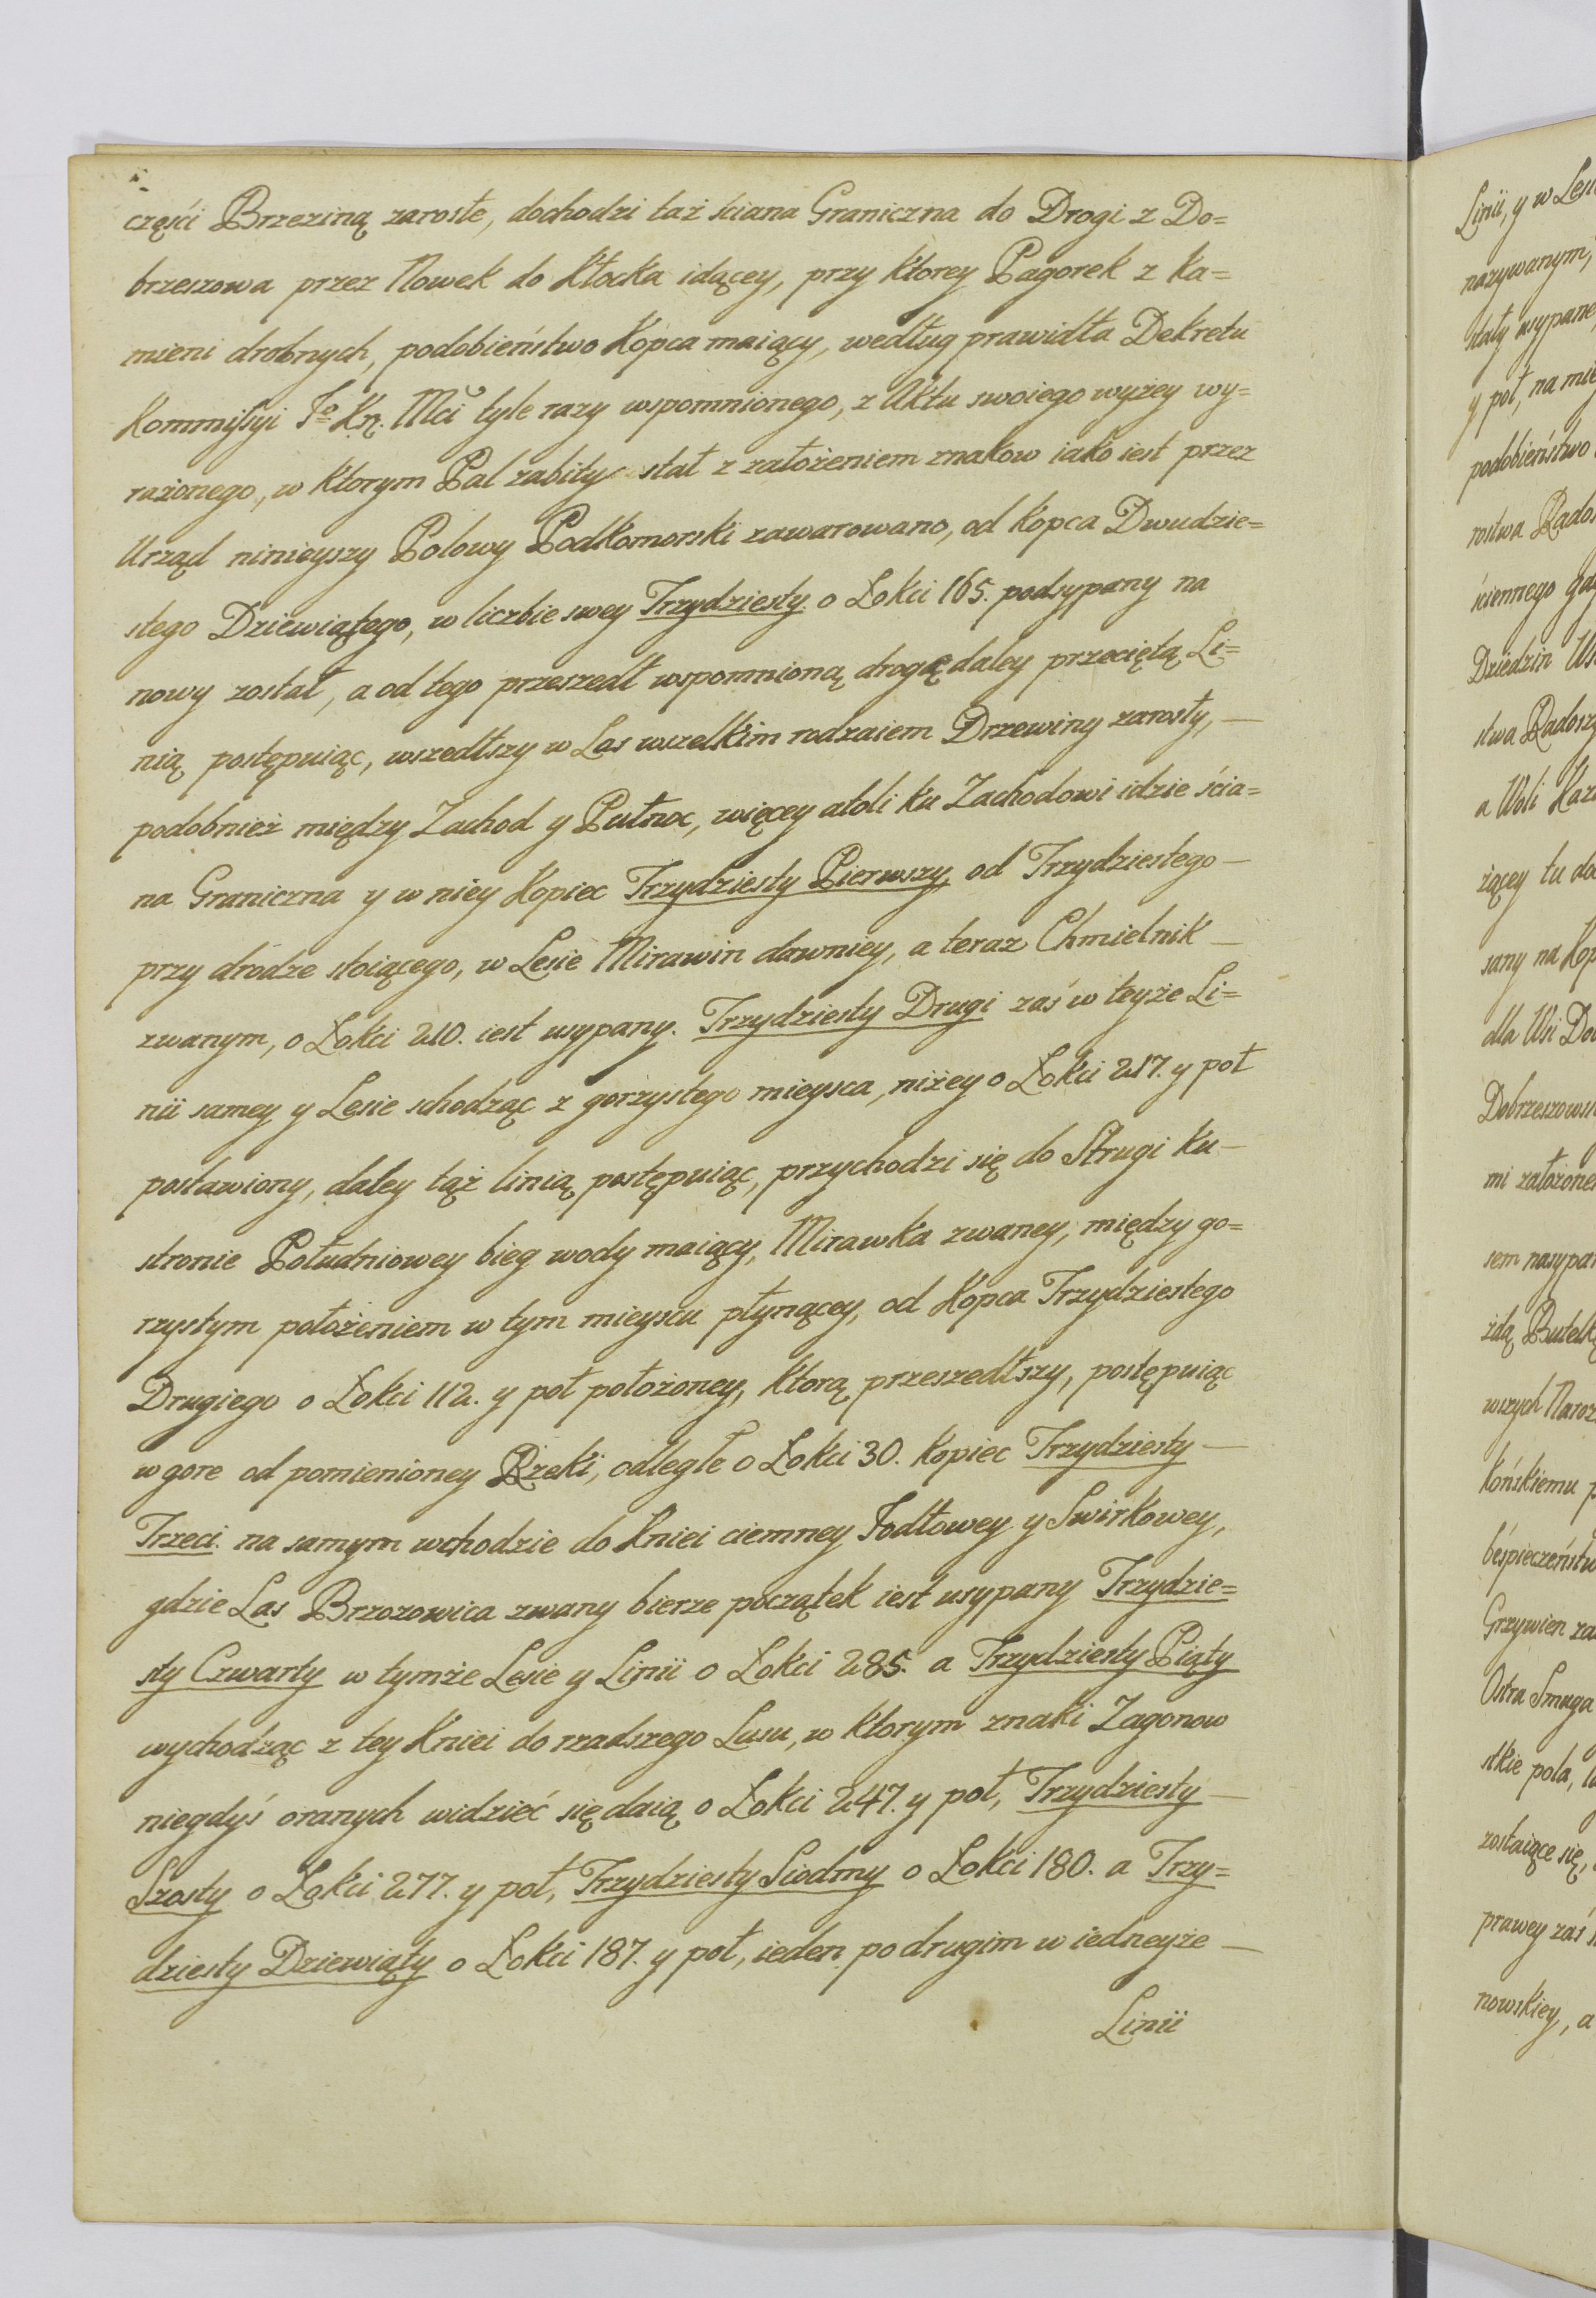 części Brzeziną zarosłe, dochodzi taż ściana Graniczna do Drogi z Do=
brzeszowa przez Nowek do Kłocka idącey, przy ktorey Pagorek z ka=
mieni drobnych, podobieństwo Kopca maiący, według prawidła Dekretu
Kommissyi Jo Kn. Mci tyle razy wspomnionego, z Aktu swoiego wyżey wy=
rażonego, w ktorym Pal zabity stał z założeniem znakow iako iest przez
Urząd ninieyszy Polowy Podkomorski zawarowano, od Kopca Dwudzie=
stego Dziewiątego, w liczbie swey Trzydziesty. o Łokci 165. podsypany na
nowy został, a od tego przeszedł wspomnioną drogę daley przeciętą Li=
nią postępuiąc, wszedłszy w Las wszelkim rodzaiem Drzewiny zarosły, —
podobnież między Zachod y Pułnoc, więcey atoli ku Zachodowi idzie ścia=
na Graniczna y w niey Kopiec Trzydziesty Pierwszy, od Trzydziestego —
przy drodze stoiącego, w Lesie Mirawin dawniey, a teraz Chmielnik —
zwanym, o Łokci 210. iest usypany. Trzydziesty Drugi zaś w teyże Li=
nii samey y Lesie schodząc z gorzystego mieysca, niżey o Łokci 217. y poł
postawiony, daley tąż linią postępuiąc, przychodzi się do Strugi ku —
stronie Południowey bieg wody maiący, Mirawka zwaney, między go=
rzystym położeniem w tym mieyscu płynącey, od Kopca Trzydziestego
Drugiego o Łokci 112. y poł położoney, ktorą przeszedłszy, postępuiąc
w gore od pomienioney Rzeki, odległe o Łokci 30. kopiec Trzydziesty —
Trzeci. na samym wchodzie do Kniei ciemney Jodłowey y Swirkowey,
gdzie Las Brzozowica zwany bierze początek iest usypany Trzydzie=
sty Czwarty w tymże Lesie y Linii o Łokci 285. a Trzydziesty Piąty
wychodząc z tey Kniei do rzadszego Lasu, w ktorym znaki Zagonow
niegdyś oranych widzieć się daią o Łokci 247. y poł, Trzydziesty —
Szosty o Łokci 277. y poł, Trzydziesty Siodmy o Łokci 180. a Trzy=
dziesty Dziewiąty o Łokci 187. y poł, ieden po drugim w iedneyże —
Linii
Linii, y w Lesi
nazywanym,
stały usypane
y poł, na mie
podobieństwo
rostwa Rados
ściennego
Dziedzin
stwa Radosz
a Woli Kaz
żącey tu do
sany na Kop
dla Wsi Do
Dobrzeszows
mi założone
sem nasypa
żdą Butelk
wszych Naroż
Końskiemu p
béspieczeństw
Grzywien za
Ostra Smuga
stkie pola,
zostaiące się,
prawey zaś
nowskiey, a